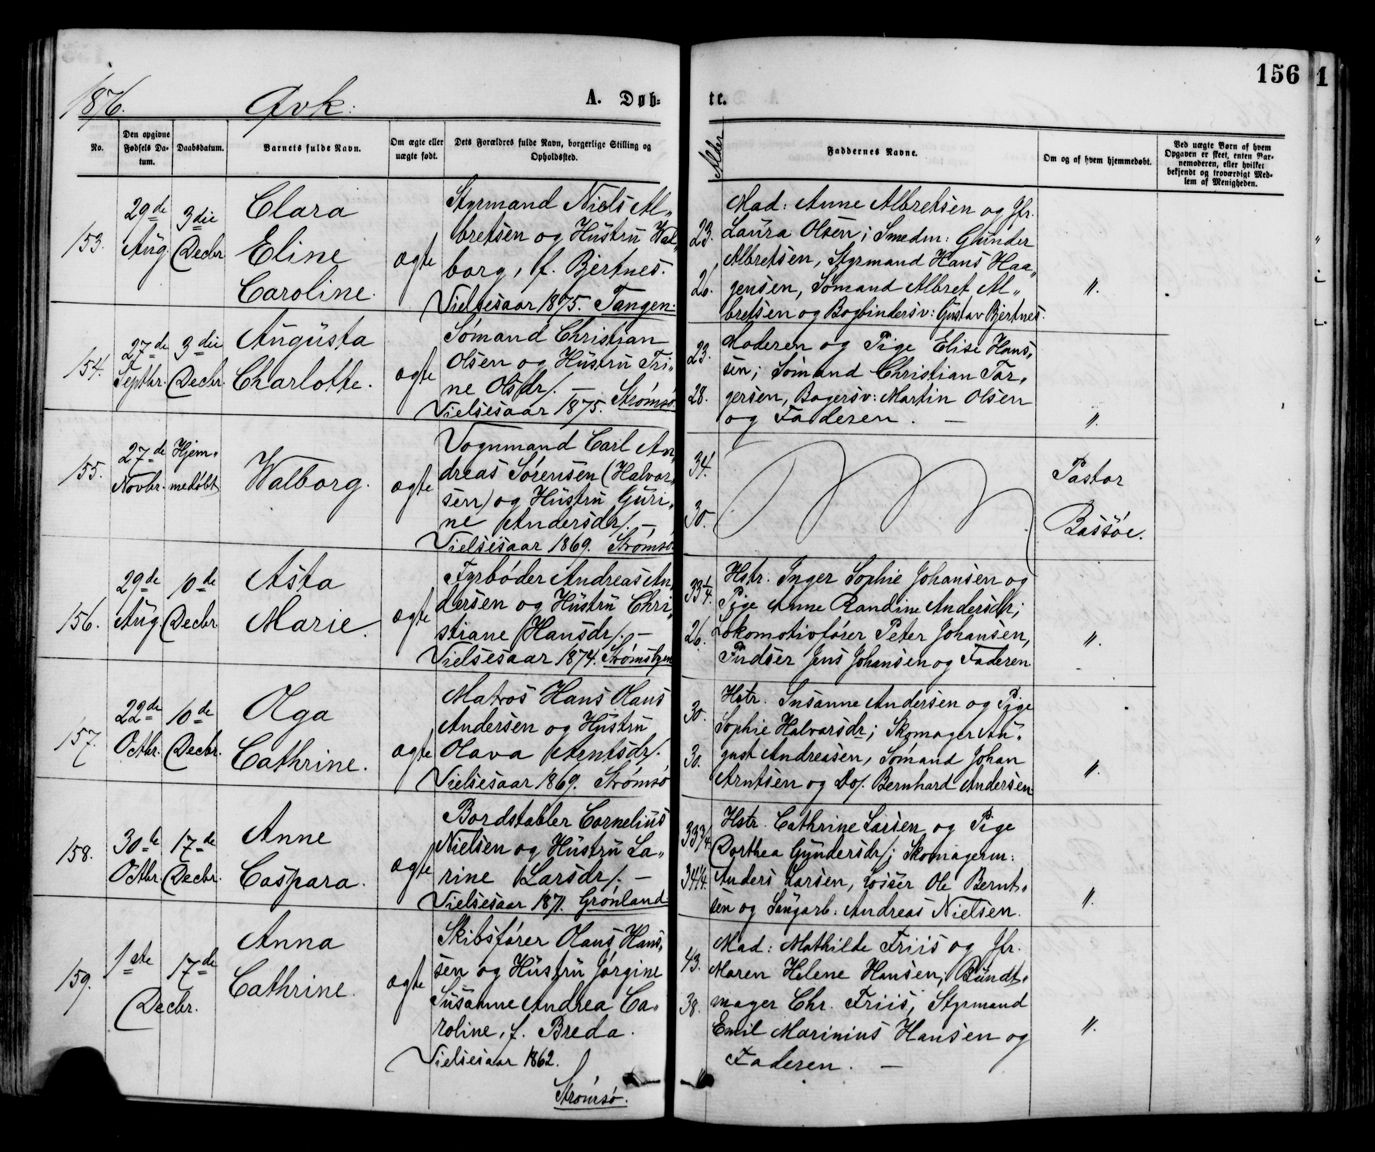 156
1
1876.
Qvk:
A. Døb-
te.
No.
Den opgivne Fødsels Datum.
Daabsdatum.
Barnets fulde Navn.
Om ægte eller uægte født.
Dets Forældres fulde Navn, borgerlige Stilling og Opholdssted.
Alder
Faddernes Navne.
Om og af hvem hjemmedøbt.
Ved uægte Børn af hvem Opgaven er skeet, enten Barnemoderen, eller hvilket bekjendt og troværdigt Medlem af Menigheden.
153.
29de Aug
3die Decbr
Clara
Eline
Caroline.
ægte
Styrmand Niels Al-
bretsen og Hustru Wal-
borg, f. Bjertnes.
Vielsesaar 1875. Tangen.
23.
26.
Mad: Anne Albretsen og Jfr.
Laura Olsen; Smedm: Gunder
Albretsen, Styrmand Hans Haa-
gensen, Sømand Albret Al-
bretsen og Bogbindersv: Gustav Bjertnes.
"
154.
27de Septbr.
3die Decbr.
Augusta
Charlotte.
ægte
Sømand Christian
Olsen og Hustru Tri-
ne Olsdr. —
Vielsesaar 1875. Strømsø
23.
28.
Moderen og Pige Elise Hans-
sen; Sømand Christian Tor-
gersen, Bagersv: Martin Olsen
og Faderen. —
"
155.
27de Novbr.
Hjem-
medøbt
Walborg.
ægte
Vognmand Carl An-
dreas Sørensen (Halvor-
sen) og Hustru Guri-
ne Andersdr. —
Vielsesaar 1869. Strømsø
34.
30.
Pastor
Bassøe.
156.
29de Aug.
10de Decbr.
Asta
Marie.
ægte
Fyrbøder Andreas An-
dersen og Hustru Chri-
stiane Hansdr. —
Vielsesaar 1874. Strømsøen
33 1/4.
26.
Hstr. Inger Sophie Johansen og
Pige Anne Randine Andersdr;
Lokomotivfører Peter Johansen,
Pudser Jens Johansen og Faderen
"
157.
22de Octbr.
10de Decbr.
Olga
Cathrine.
ægte
Matros Hans Olaus
Andersen og Hustru
Olava Arntsdr.
Vielsesaar 1869. Strømsø
30.
30.
Hstr. Susanne Andersen og Pige
Sophie Halvorsdr; Skomager Au-
gust Andreasen, Sømand Johan
Arntsen og Do. Bernhard Andersen
"
158.
30te Octbr.
17de Decbr.
Anne
Caspara.
ægte
Bordstabler Cornelius
Nielsen og Hustru La-
rine Larsdr. —
Vielsesaar 1871. Grønland
33 3/4
34 1/4.
Hstr. Cathrine Larsen og Pige
Dorthea Gundersdr; Skomagerm:
Anders Larsen, Ole Bernt-
sen og Saugarb: Andreas Nielsen.
"
159.
1ste
17de
Decbr.
Anna
Cathrine.
ægte
Skibsfører Olaus Hans-
sen og Hustru Jørgine
Susanne Andrea Ca-
roline, f. Breda.
Vielsesaar 1862.
Strømsø.
43.
38.
Mad: Mathilde Friis og Jfr.
Maren Helene Hansen; Bundt-
mager Chr. Friis, Styrmand
Emil Marinius Hansen og
Faderen. —
"